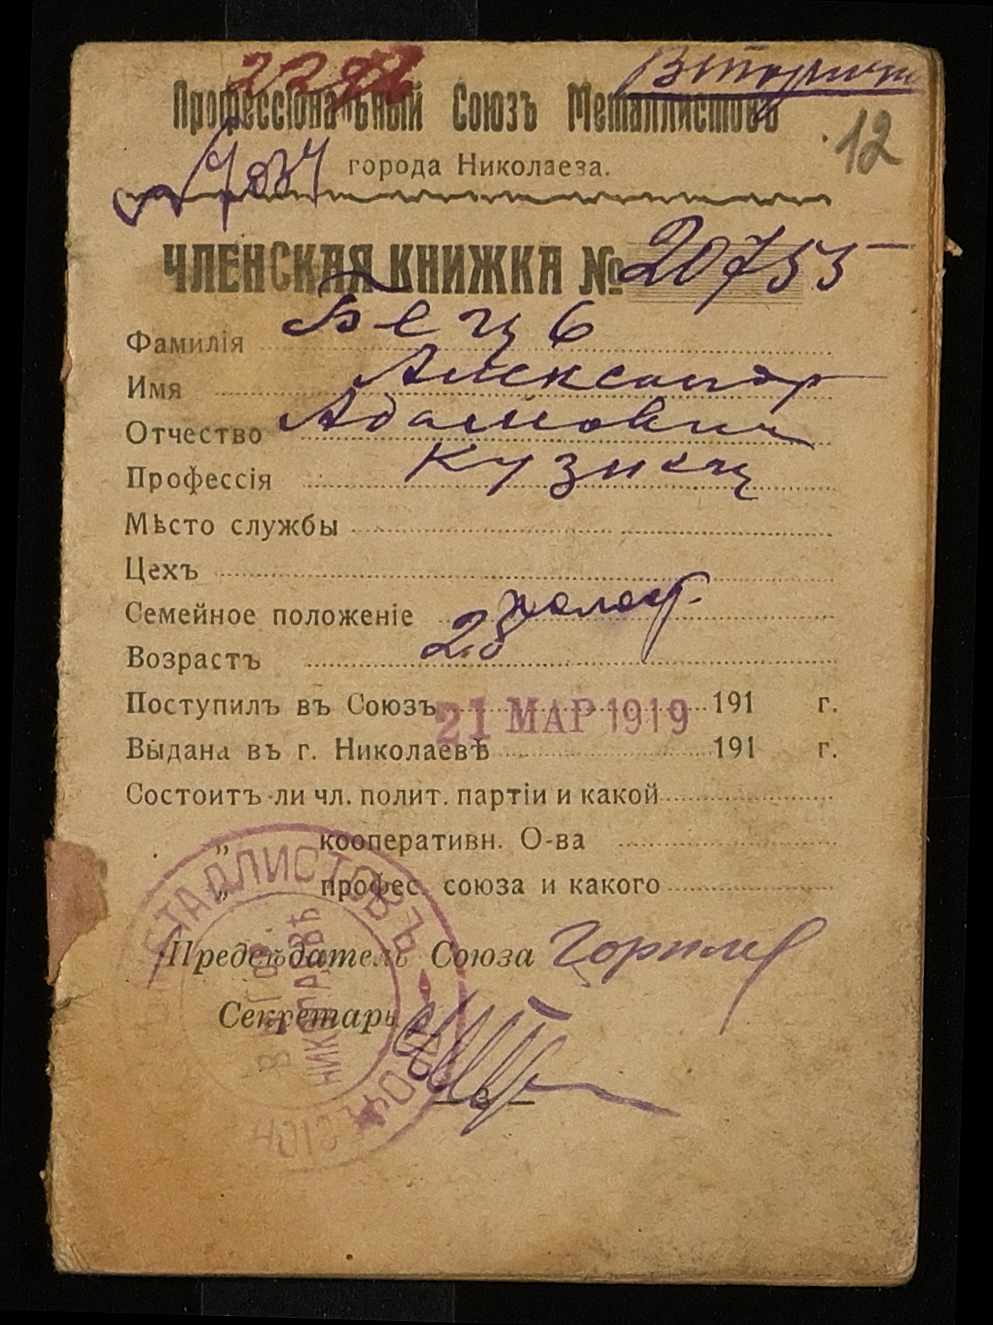 Профессіональный Союзъ Металлистовъ
12
города Николаева.
ЧЛЕНСКАЯ КНИЖКА № 20755
Фамилія Бецъ
Имя Александр
Отчество Адамович
Профессія Кузнец
Мѣсто службы
Цехъ
Семейное положеніе холост.
Возрастъ 28
Поступилъ въ Союзъ 21 МАР 1919 191 г.
Выдана въ г. Николаевѣ 191 г.
Состоитъ ли чл. полит. партіи и какой
„ кооперативн. О-ва
„ профес. союза и какого
Предсѣдатель Союза
Секретарь
МЕТАЛЛИСТОВЪ
В ГОР.
НИКОЛАЕВѢ